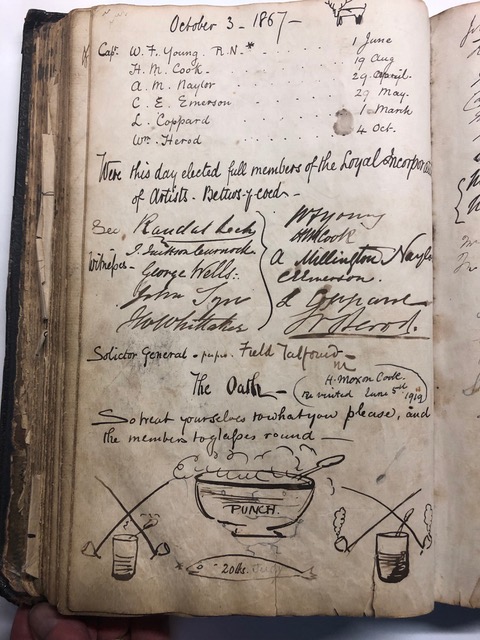 October 3 - 1867 -
Capt. W. F. Young. R.N.* 1 June
H. M. Cook. 19 Aug
A. M. Naylor 29 April.
C. E. Emerson 29 May.
L. Coppard 1 March
Wm. Herod 4 Oct.
Were this day elected full members of the Loyal Incorpor
of Artists. Bettws-y-coed -
Sec Randal
W F Young
HM Cook
Witnesses - T. Jackson Curnock
A Millington Naylor
George Wells.
CEEmerson.
John
L Coppard
J W Whittaker
W Herod.
Solicitor General - Field Talfourd
The Oath -
H. Moxon Cook.
re visited June 5th 1919
So treat yourselves to what you please, and
the members to glasses round -
PUNCH.
20lbs.